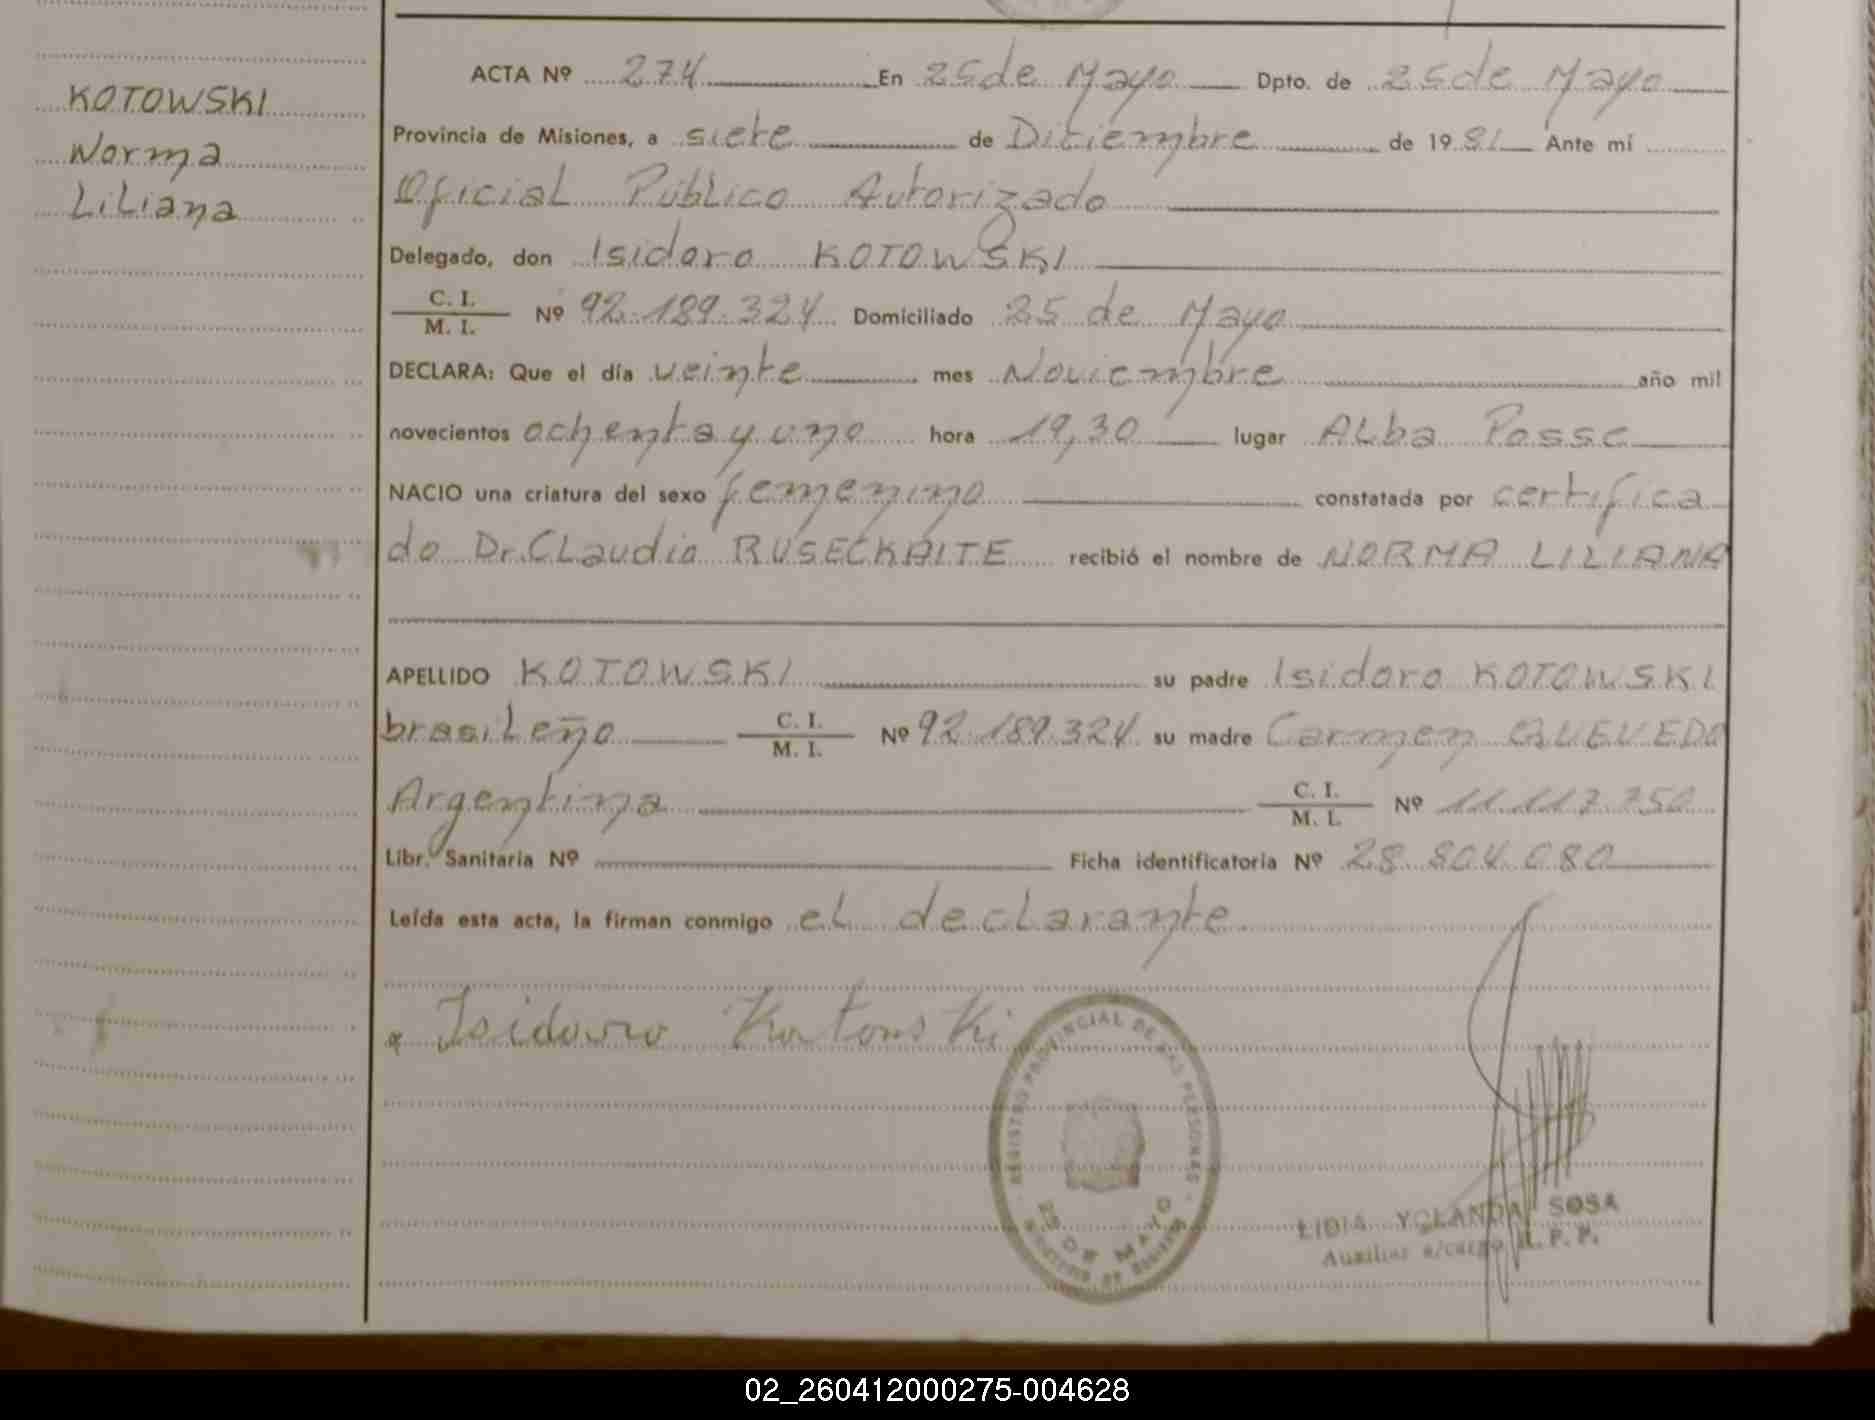 KOTOWSKI
Norma
Liliana
ACTA Nº 274 En 25 de Mayo Dpto. de 25 de Mayo
Provincia de Misiones, a siete de Diciembre de 1981 Ante mí
Oficial Público Autorizado
Delegado, don Isidoro KOTOWSKI
C. I.
M. I. Nº 92.189.324 Domiciliado 25 de Mayo
DECLARA: Que el día veinte mes Noviembre año mil
novecientos ochenta y uno hora 19,30 lugar Alba Posse
NACIO una criatura del sexo femenino constatada por certifica
do Dr. Claudia RUSECKAITE recibió el nombre de NORMA LILIANA
APELLIDO KOTOWSKI su padre Isidoro KOTOWSKI
brasileño C. I. M. I. Nº 92.189.324 su madre Carmen QUEVEDO
Argentina C. I. M. I. Nº 11.117.750
Libr. Sanitaria Nº Ficha identificatoria Nº 28.804.080
Leída esta acta, la firman conmigo el declarante
Isidoro Kotowski
REGISTRO PROVINCIAL DE LAS PERSONAS
25 DE MAYO
LIDIA YOLANDA SOSA
Auxiliar a/cargo R. P. P.
02_260412000275-004628